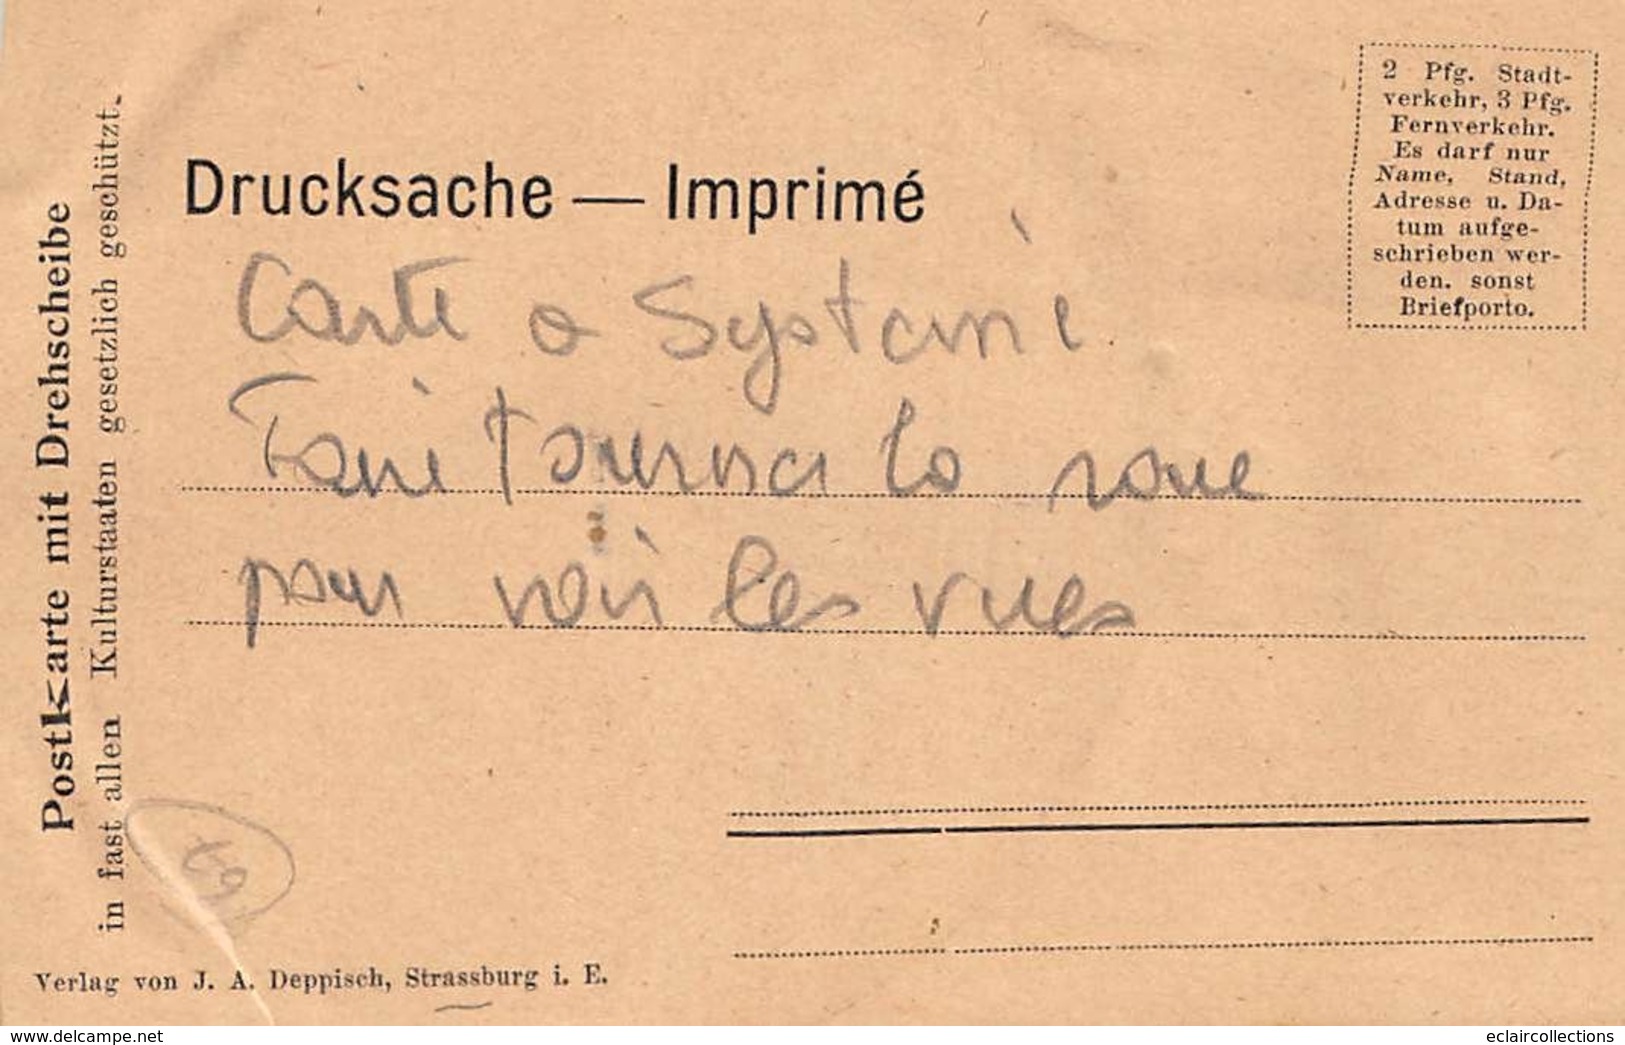 Postkarte mit Drehscheibe
in fast allen Kulturstaaten gesetzlich geschützt.
Drucksache — Imprimé
2 Pfg. Stadt-
verkehr, 3 Pfg.
Fernverkehr.
Es darf nur
Name, Stand,
Adresse u. Da-
tum aufge-
schrieben wer-
den. sonst
Briefporto.
Carte a Système
Faire tourner la roue
pour voir les vues
67
Verlag von J. A. Deppisch, Strassburg i. E.
www.delcampe.net
eclaircollections